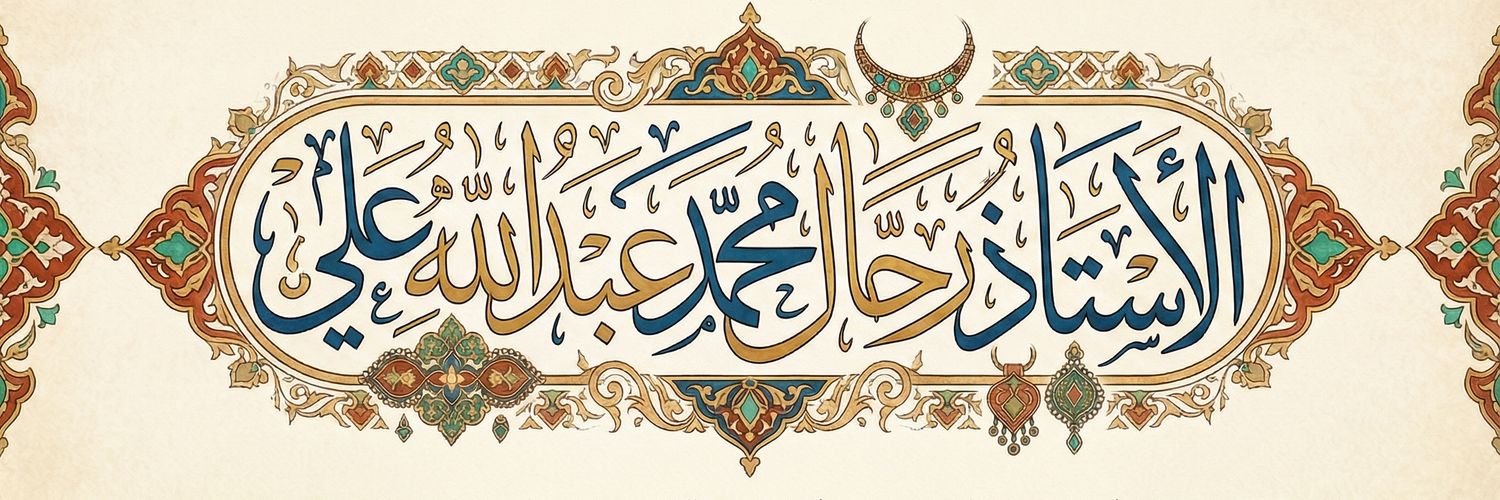 الأستاذ رحّال محمّد عبد الله علي